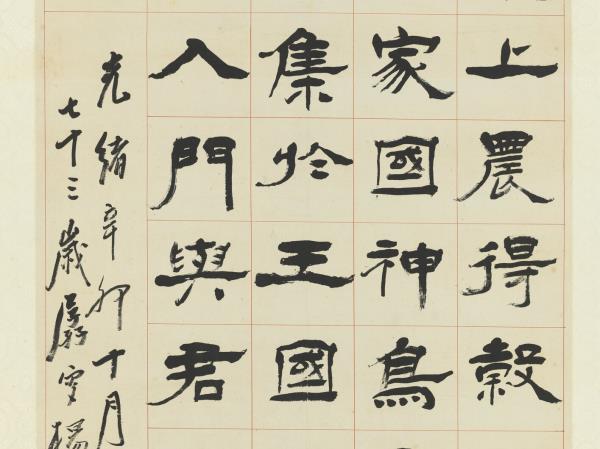 上農得穀
家國神鳥
集於王國
入門與君
光緒辛卯十月
七十三歲孱叟楊